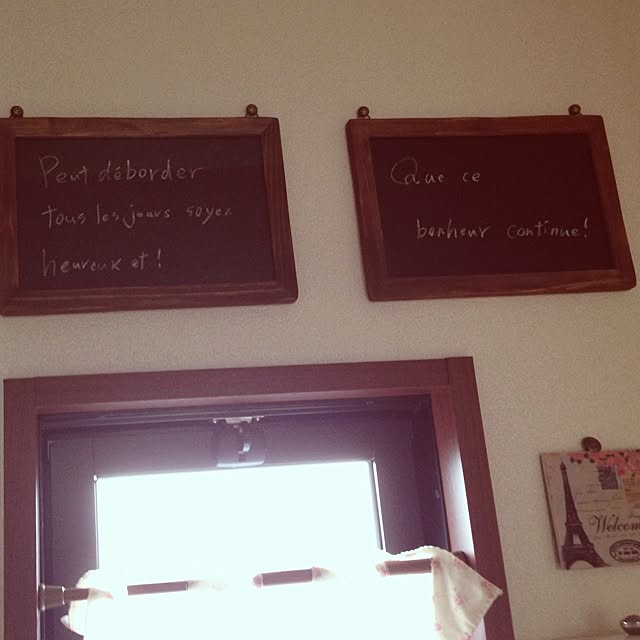 Peut déborder
tous les jours soyez
heureux et !
Que ce
bonheur continue!
Welcom